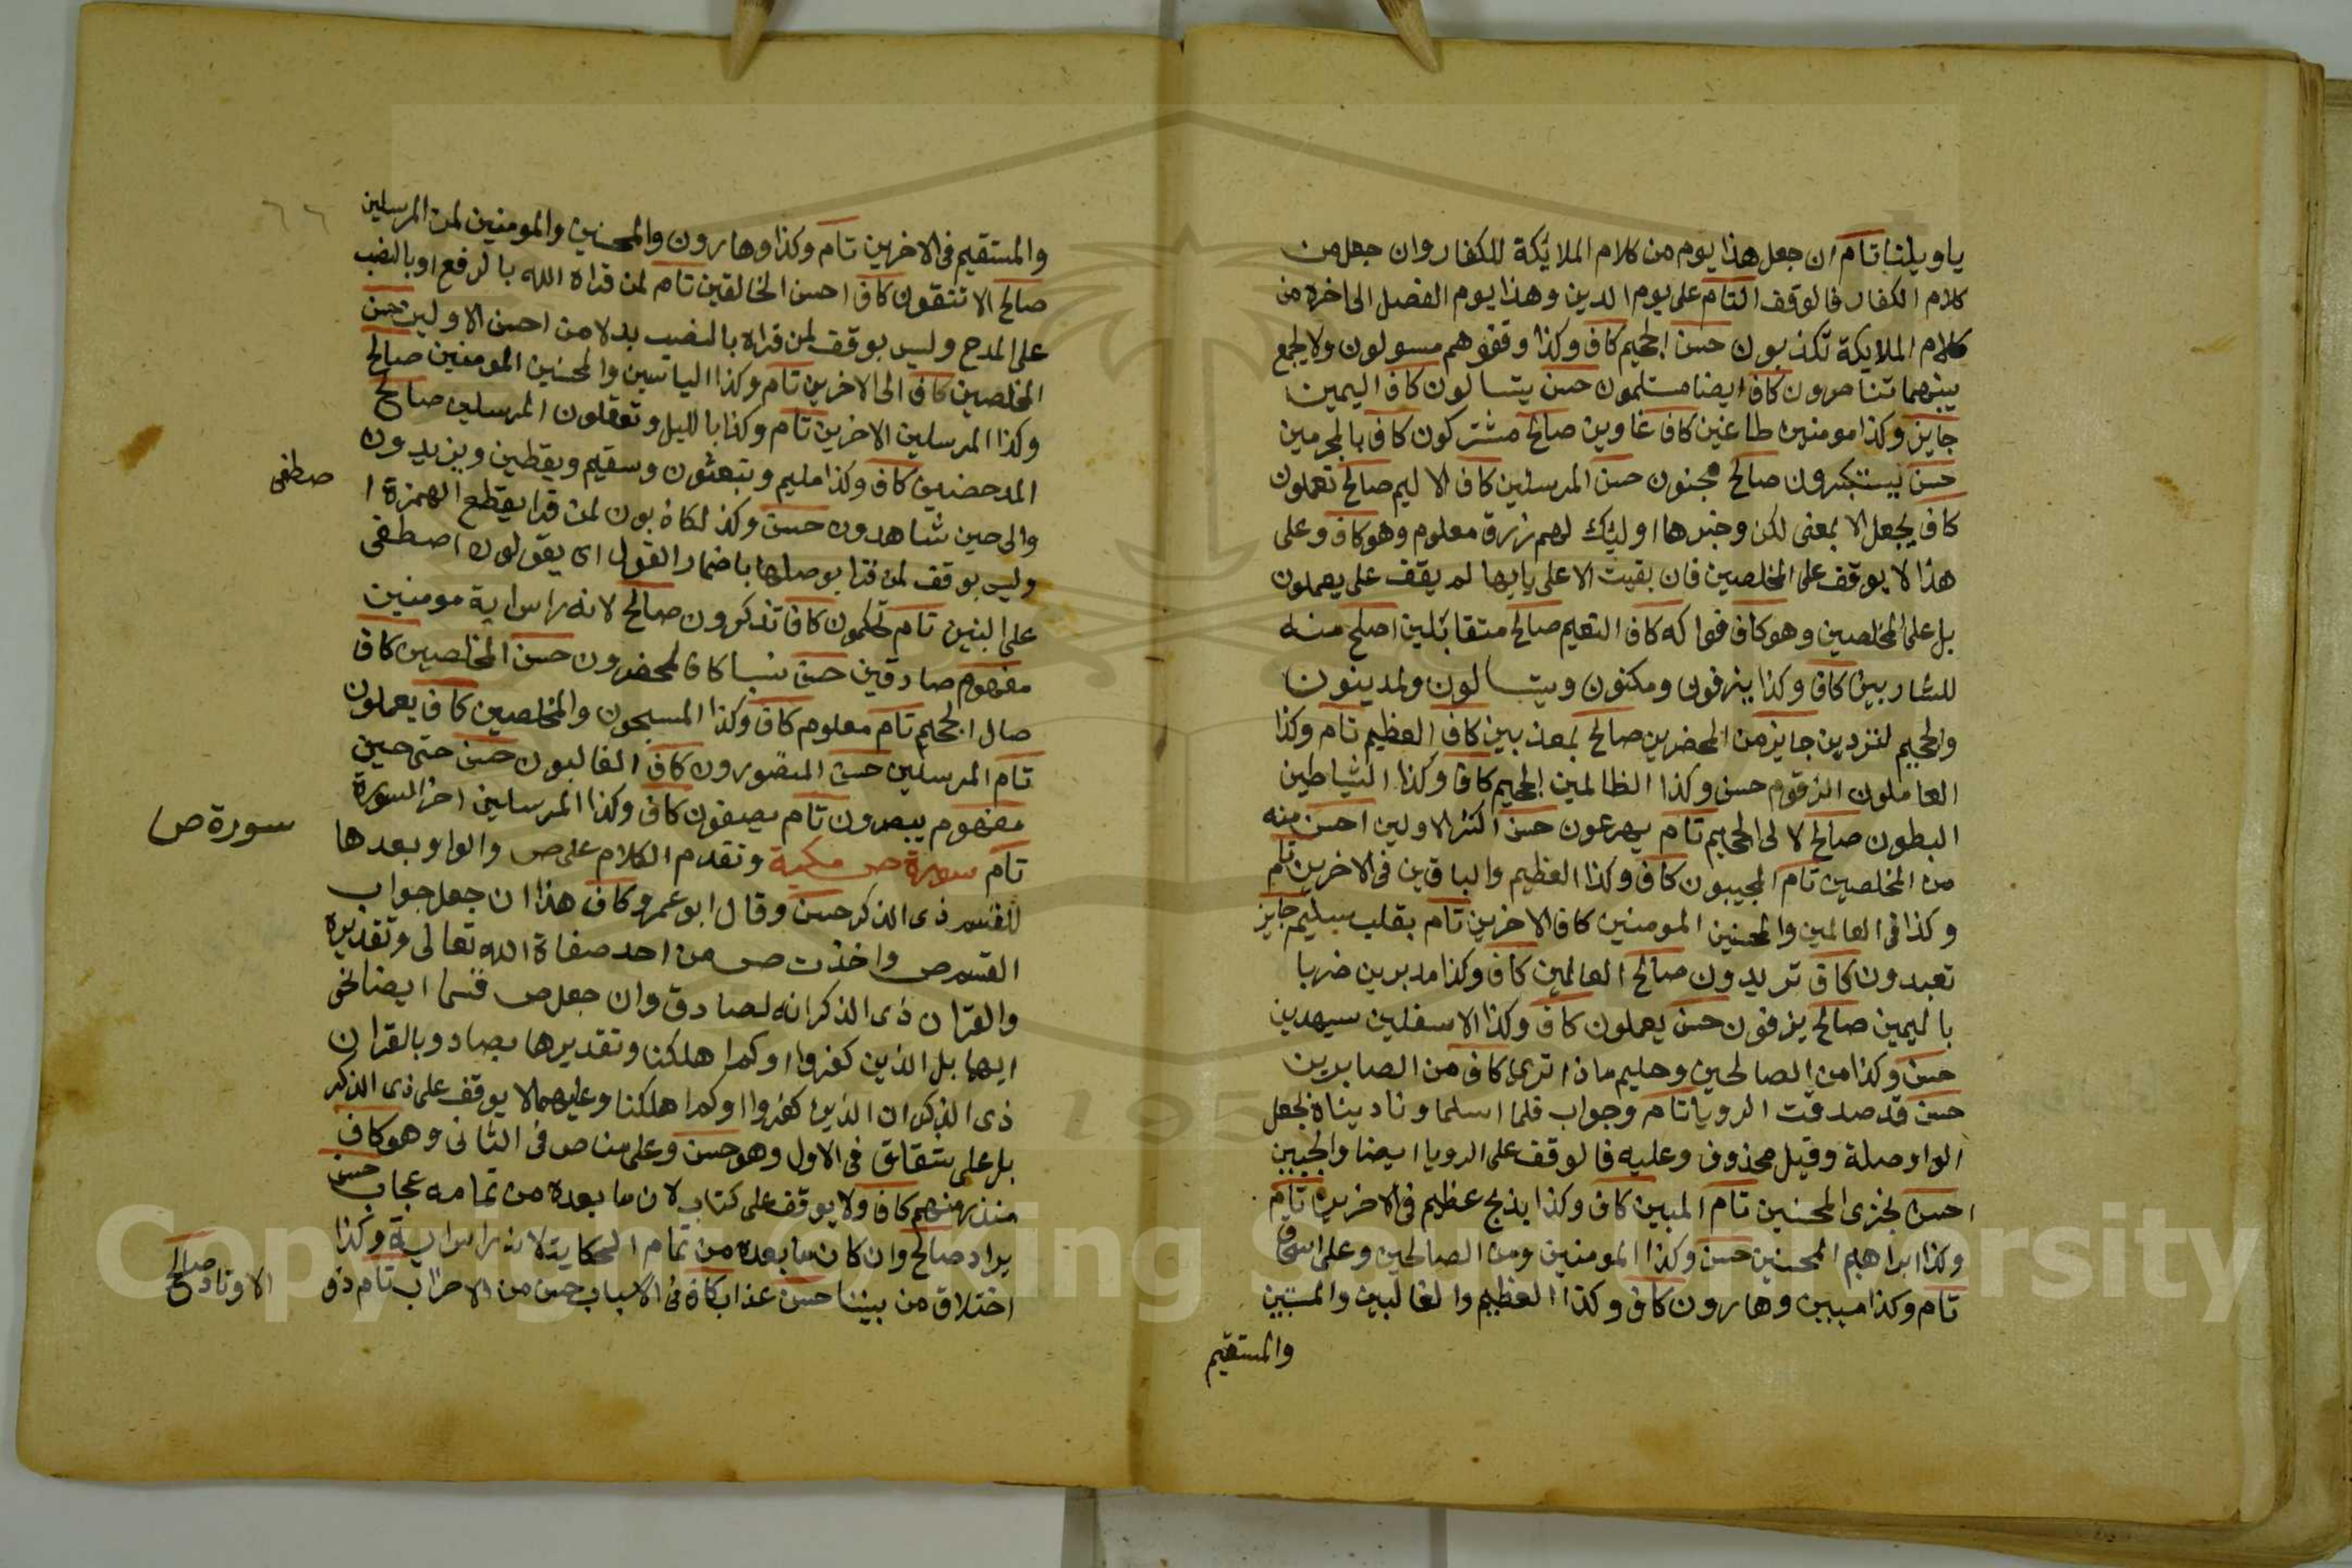 ياويلنا تام ان جعل هذا يوم من كلام الملائكة للكفار وان جعل من
كلام الكفار فالوقف التام على يوم الدين وهذا يوم الفصل الى اخره من
كلام الملايكة تكذبون حسن الجحيم كاف وكذا وقفوهم مسولون ولا يجمع
بينهما تناصرون كاف ايضا مستسلمون حسن يتسالون كاف اليمين
جايز وكذا مومنين طاغين كاف غاوين صالح مشتركون كاف بالمجرمين
حسن يستكبرون صالح مجنون حسن المرسلين كاف الاليم صالح تعملون
كاف يجعل الا بمعنى لكن وخبرها اوليك لهم رزق معلوم وهو كاف وعلى
هذا لا يوقف على المخلصين فان بقيت الا على بابها لم يقف على يعملون
بل على المخلصين وهو كاف فواكه كاف النعيم صالح متقابلين اصلح منه
للشاربين كاف وكذا ينزفون ومكنون ويتسالون ولمدينون
والجحيم لتردين جايز من المحضرين صالح بمعذبين كاف العظيم تام وكذا
العاملون الزقوم حسن وكذا الظالمين الجحيم كاف وكذا الشياطين
البطون صالح لا لى الجحيم تام يهرعون حسن اكثر الاولين احسن منه
من المخلصين تام المجيبون كاف وكذا العظيم والباقين فى الاخرين تام
وكذا فى العالمين والمحسنين المومنين كاف الاخرين تام بقلب سليم جايز
تعبدون كاف تريدون صالح العالمين كاف وكذا مدبرين ضربا
باليمين صالح يزفون حسن يعملون كاف وكذا الاسفلين سيهدين
حسن وكذا من الصالحين وحليم ماذا ترى كاف من الصابرين
حسن قد صدقت الرويا تام وجواب فلما اسلما وناديناه بجعل
الواو صلة وقيل محذوف وعليه فالوقف على الرويا ايضا والجبين
احسن نجزى المحسنين تام المبين كاف وكذا بذبح عظيم فى الاخرين تام
وكذا ابراهيم المحسنين حسن وكذا المومنين ومن الصالحين وعلى اسحاق
تام وكذا مبين وهارون كاف وكذا العظيم والغالبين والمستبين
والمستقيم
٦٦
والمستقيم فى الاخرين تام وكذا وهارون والمحسنين والمومنين لمن المرسلين
صالح الا تتقون كاف احسن الخالقين تام لمن قراه الله بالرفع او بالنصب
على المدح وليس بوقف لمن قراه بالنصب بدلا من احسن الاولين حسن
المخلصين كاف الى الاخرين تام وكذا الياسين والمحسنين المومنين صالح
وكذا المرسلين الاخرين تام وكذا بالليل وتعقلون المرسلين صالح
المدحضين كاف وكذا مليم ويبعثون وسقيم ويقطين ويزيدون
والى حين شاهدون حسن وكذ لكاذبون لمن قرا بقطع الهمزة ا
صطفى
وليس بوقف لمن قرا بوصلها باضمار القول اى يقولون اصطفى
على البنين تام تحكمون كاف تذكرون صالح لانه راس اية مومنين
مفهوم صادقين حسن نسبا كاف لمحضرون حسن المخلصين كاف
صال الجحيم تام معلوم كاف وكذا المسبحون والمخلصين كاف يعملون
تام المرسلين حسن المنصورون كاف الغالبون حسن حتى حين
مفهوم يبصرون تام يصفون كاف وكذا المرسلين اخر السورة
تام سورة ص مكية وتقدم الكلام على ص والواو بعدها
سورة ص
للقسم ذى الذكر حسن وقال ابو عمرو كاف هذا ان جعل جواب
القسم ص واخذت ص من احد صفاة الله تعالى وتقديره
والقران ذى الذكر انه لصادق وان جعل ص قسما ايضا
ايها بل الذين كفروا او كم اهلكنا وتقديرها بصاد وبالقران
ذى الذكر ان الذين كفروا او كم اهلكنا وعليهما لا يوقف على ذى الذكر
بل على شقاق فى الاول وهو حسن وعلى مناص فى الثانى وهو كاف
منذر منهم كاف ولا يوقف على كتاب لان ما بعده من تمامه عجاب حسن
يراد صالح وان كان ما بعده من تمام الحكاية لانه راس اية وكذا
اختلاق من بيننا حسن عذاب كاف فى الاسباب حسن من الاحزاب تام ذو
الاوتاد صالح
Copyright © King Saud University
195